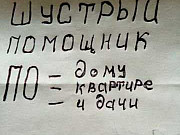 ШУСТРЫЙ
ПОМОЩНИК
ПО = дому
= квартире
= и дачи